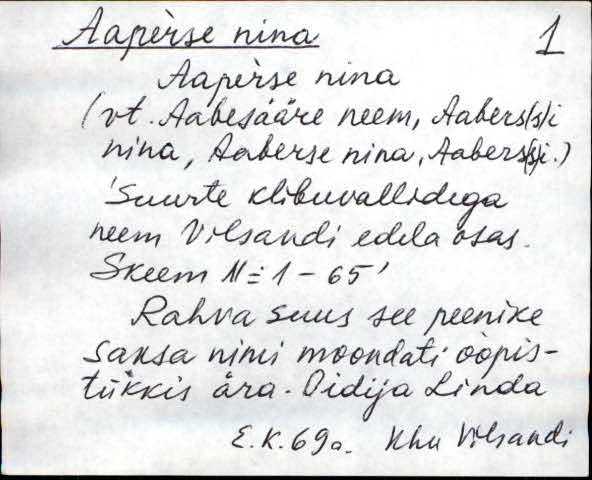 Aapèrse nina 1
Aapèrse nina
(vt. Aabesääre neem, Aabers(s)i
nina, Aaberse nina, Aabers(s)i.)
'Suurte klibuvallidega
neem Vilsandi edela osas.
Skeem № 1 - 65'
Rahva suus see peenike
saksa nimi moondati ööpis-
tükkis ära. Didija Linda
E.K. 69a. Khu Vilsandi